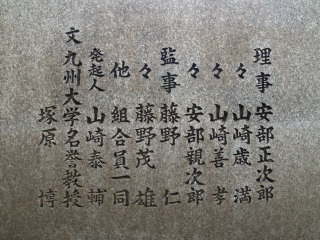 理事 安部正次郎
々 山崎歳満
々 山崎善孝
々 安部親次郎
監事 藤野仁
々 藤野茂雄
他 組合員一同
発起人 山崎泰輔
文 九州大学名誉教授
塚原博